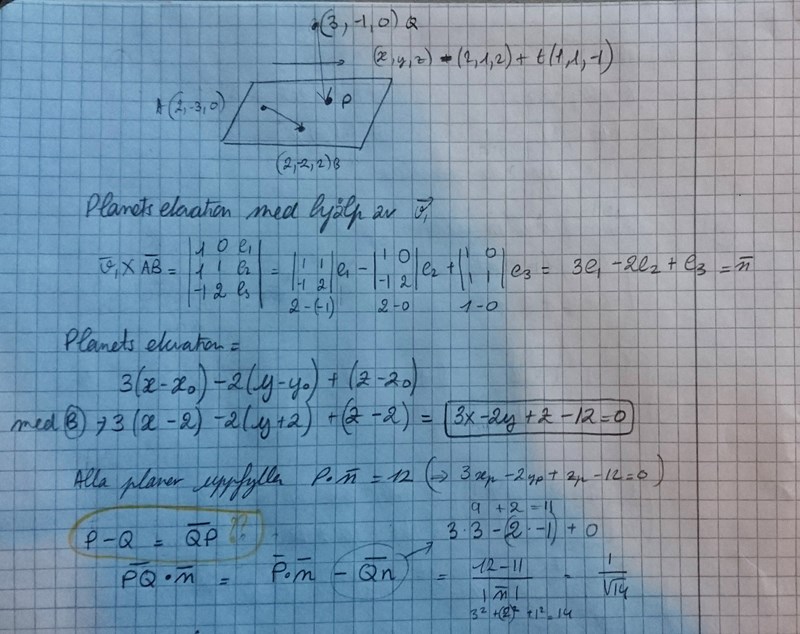 (3,-1,0) Q
(x,y,z) = (2,1,2) + t(1,1,-1)
A(2,-3,0)
P
(2,-2,2)B
Planets ekvation med hjälp av v⃗₁
v̄₁ × A̅B̅ = |1 0 e₁; 1 1 e₂; -1 2 e₃| = |1 1; -1 2| e₁ - |1 0; -1 2| e₂ + |1 0; 1 1| e₃ = 3e₁ - 2e₂ + e₃ = n̄
2-(-1) 2-0 1-0
Planets ekvation =
3(x-x₀) - 2(y-y₀) + (z-z₀)
med B → 3(x-2) - 2(y+2) + (z-2) = 3x-2y+z-12=0
Alla planer uppfyller P·n̄ = 12 (→ 3xp - 2yp + zp - 12=0)
9 + 2 = 11
P-Q = Q̅P̅ ?
3·3 - (2·-1) + 0
P̅Q̅ · n̄ = P̄·n̄ - Q̄n̄ = 12-11 / |n̄| = 1/√14
3²+(2)²+1²=14